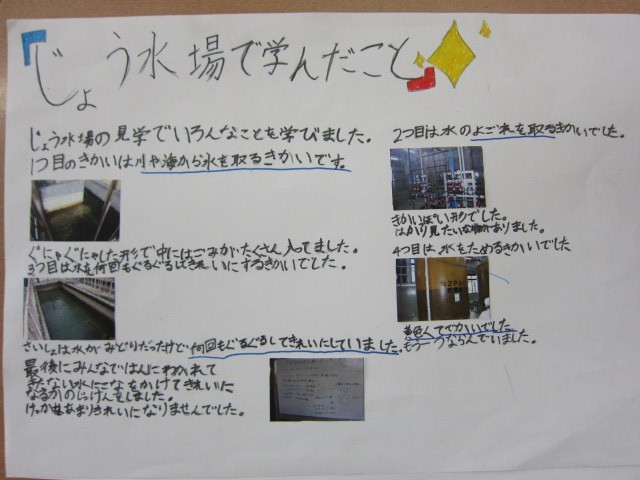 『じょう水場で学んだこと』
じょう水場の見学でいろんなことを学びました。
1つ目のきかいは川や海から水を取るきかいです。
ぐにゃぐにゃした形で中にはごみがたくさん入ってました。
3つ目は水を何回もぐるぐるしきれいにするきかいでした。
さいしょは水がみどりだったけど何回もぐるぐるしてきれいにしていました。
最後にみんなではんにわかれて
きたない水にこなをかけてきれいに
なるかのじっけんをしました。
けっかはあまりきれいになりませんでした。
2つ目は水のよごれを取るきかいでした。
きかいぽい形でした。
はかり見たいな物がありました。
4つ目は、水をためるきかいでした
黄色くてでかいでした
もう一つならんでいました。